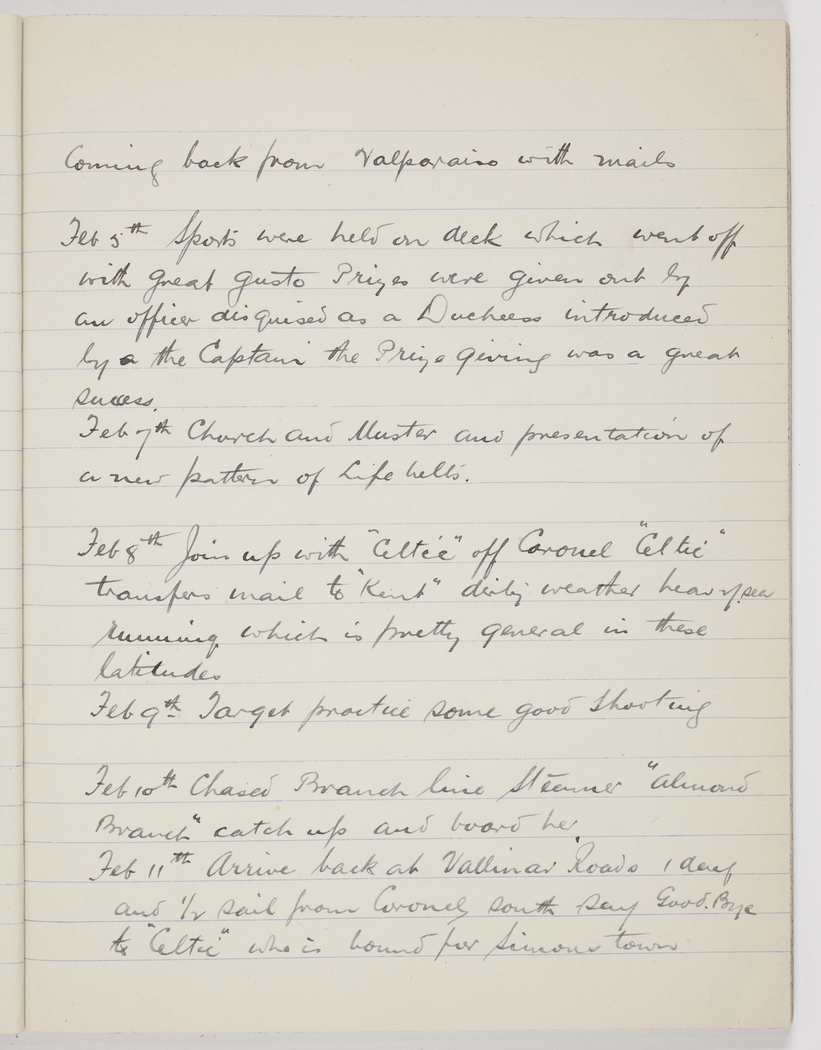 Coming back from Valparaiso with mails
Feb 5th Sports were held on deck which went off
with great gusto Prizes were given out by
an officer disguised as a Ducheess introduced
by a the Captain the Prize giving was a great
sucess.
Feb 7th Church and Muster and presentation of
a new pattern of Life belts.
Feb 8th Join up with "Celtic" off Coronel "Celtic"
transfers mail to "Kent" dirty weather heavy sea
running which is pretty general in these
latitudes
Feb 9th Target practice some good shooting
Feb 10th Chased Branch line Steamer "Almond
Branch" catch up and board her.
Feb 11th Arrive back at Vallinar Roads 1 day
and 1/2 sail from Coronel, south say Good.Bye
to "Celtic" who is bound for Simons town